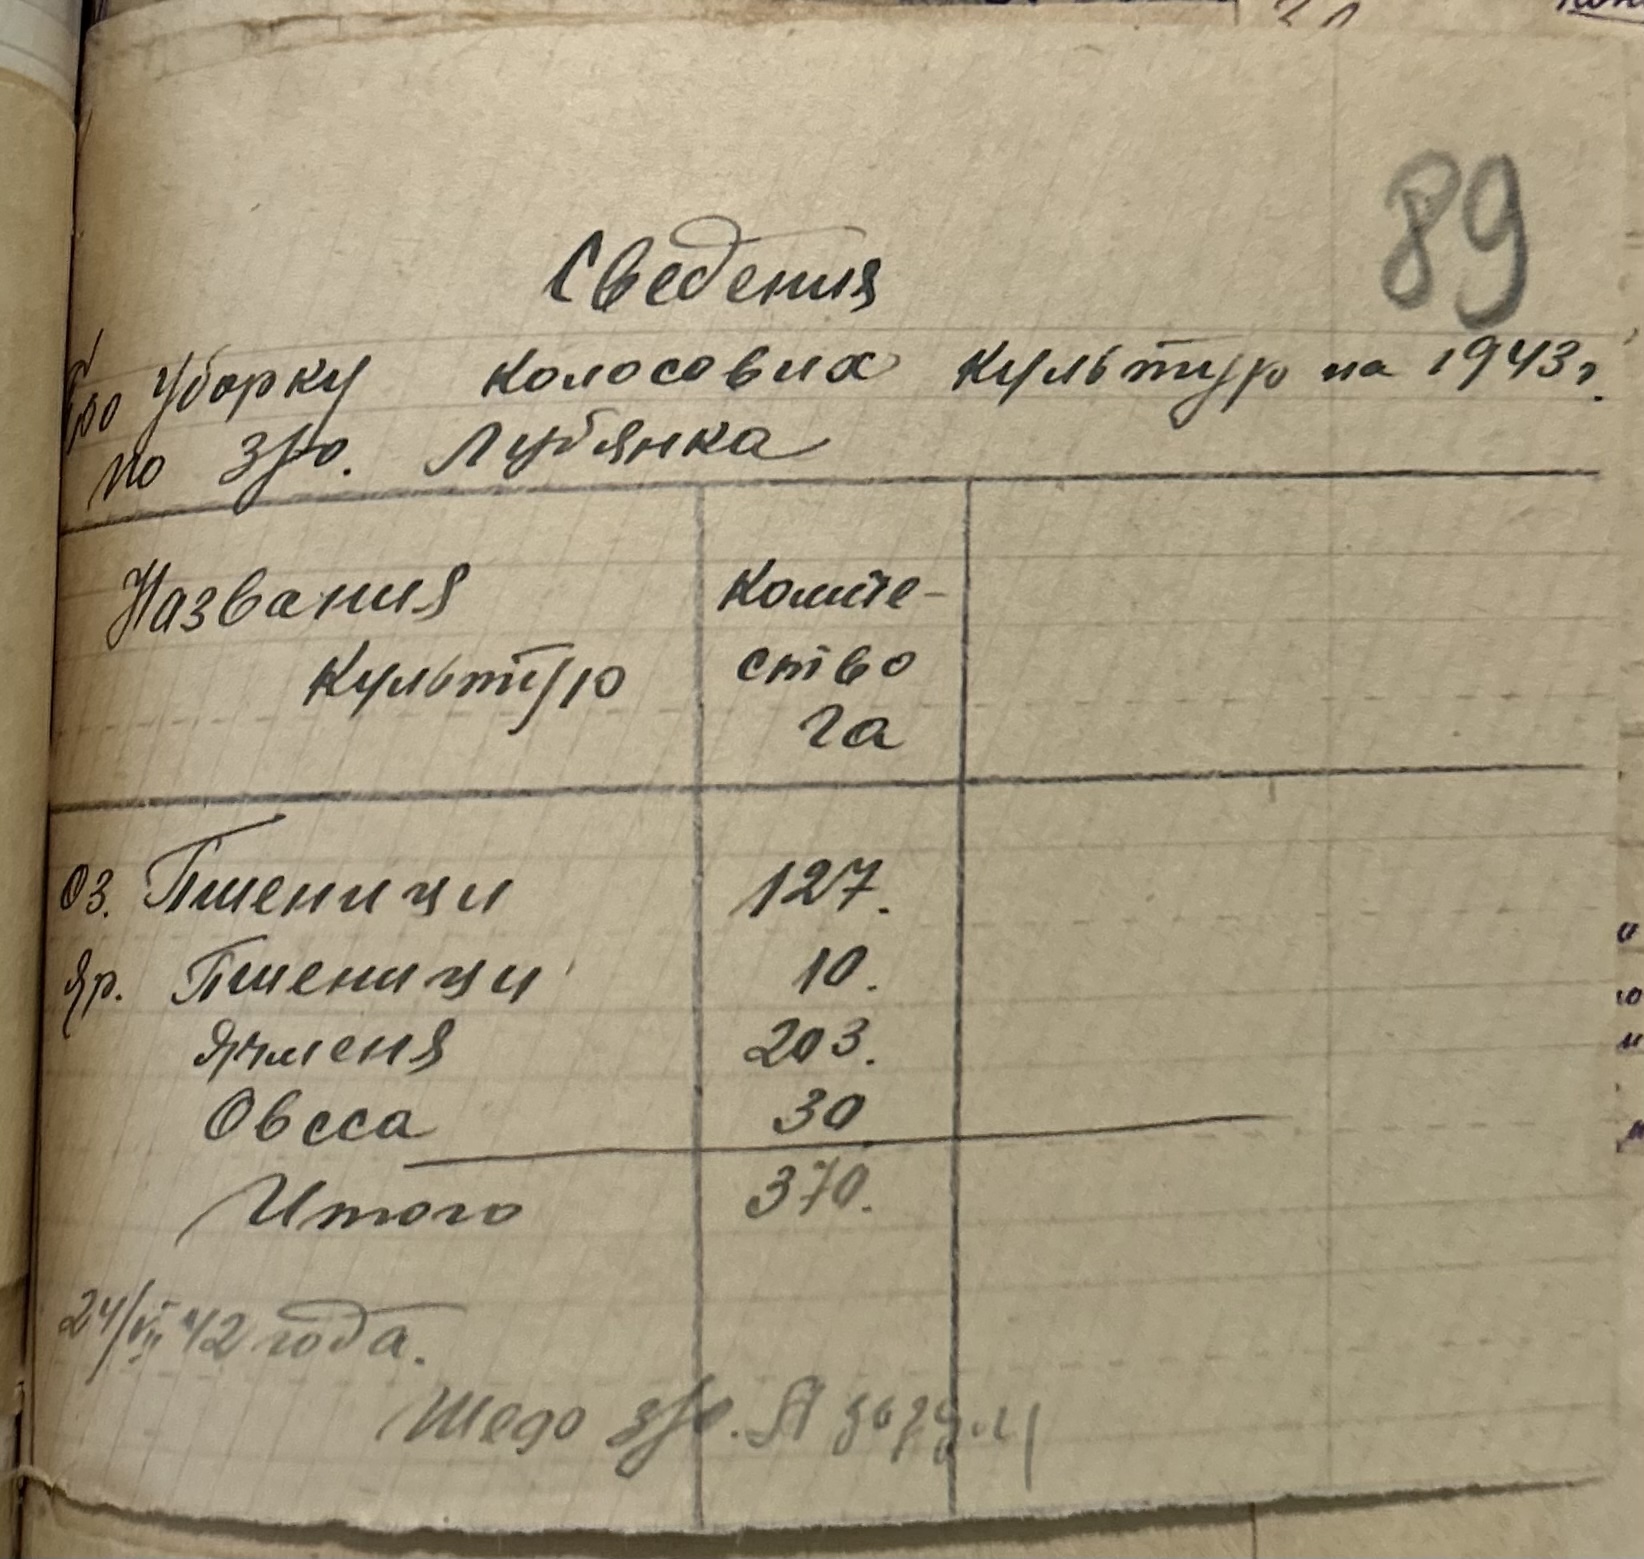 89
Сведения
Про уборку колосових культур на 1943 г.
по згр. Лубянка
Названия культур
Количе-
ство
га
Оз. Пшеници 127.
Яр. Пшеници 10.
Ячменя 203.
Овсса 30
Итого 370.
24/VII 42 года.
згр.